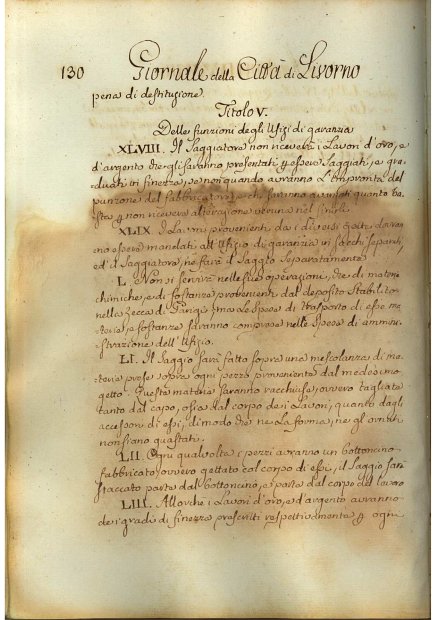 130 Giornale della Città di Livorno
pena di destituzione.
Titolo V.
Delle funzioni degli Ufizi di garanzia
XLVIII. Il Saggiatore non riceverà i Lavori d'oro, e
d'argento che gli saranno presentati p essere Saggiati, e gra-
duati in finezza, se non quando avranno L'impronta del
punzone del fabbricatore, e che saranno quanto ba-
sta p non ricever alterazione veruna nel finirli
XLIX. I Lavori provenienti da i diversi getti dovran-
no essere mandati all'Ufizio di garanzia in sacchi separati,
ed il Saggiatore ne farà il Saggio separatamente
L. Non si servirà nelle sue operazioni, che di materie
chimiche, e di sostanze provenienti dal deposito Stabilito
nella Zecca di Parigi, ma Le spese di trasporto di esse ma-
terie, e sostanze saranno comprese nelle Spese di ammini-
strazione dell'Ufizio.
LI. Il Saggio sarà fatto sopra una mescolanza di ma-
terie prese sopra ogni pezzo proveniente dal medesimo
getto. Queste materie saranno racchiuse, ovvero tagliate
tanto dal capo, osia dal corpo dei Lavori, quanto dagli
accessori di essi, di modo che ne La forma, ne gl'ornati
non siano guastati.
LII. Ogni qualvolta i pezzi avranno un bottoncino
fabbricato, ovvero gettato col corpo di essi, il Saggio sarà
staccato parte dal bottoncino, e parte dal corpo del lavoro
LIII. Allorchè i Lavori d'oro, e d'argento avranno
dei gradi di finezza prescritti respettivamente p ogni